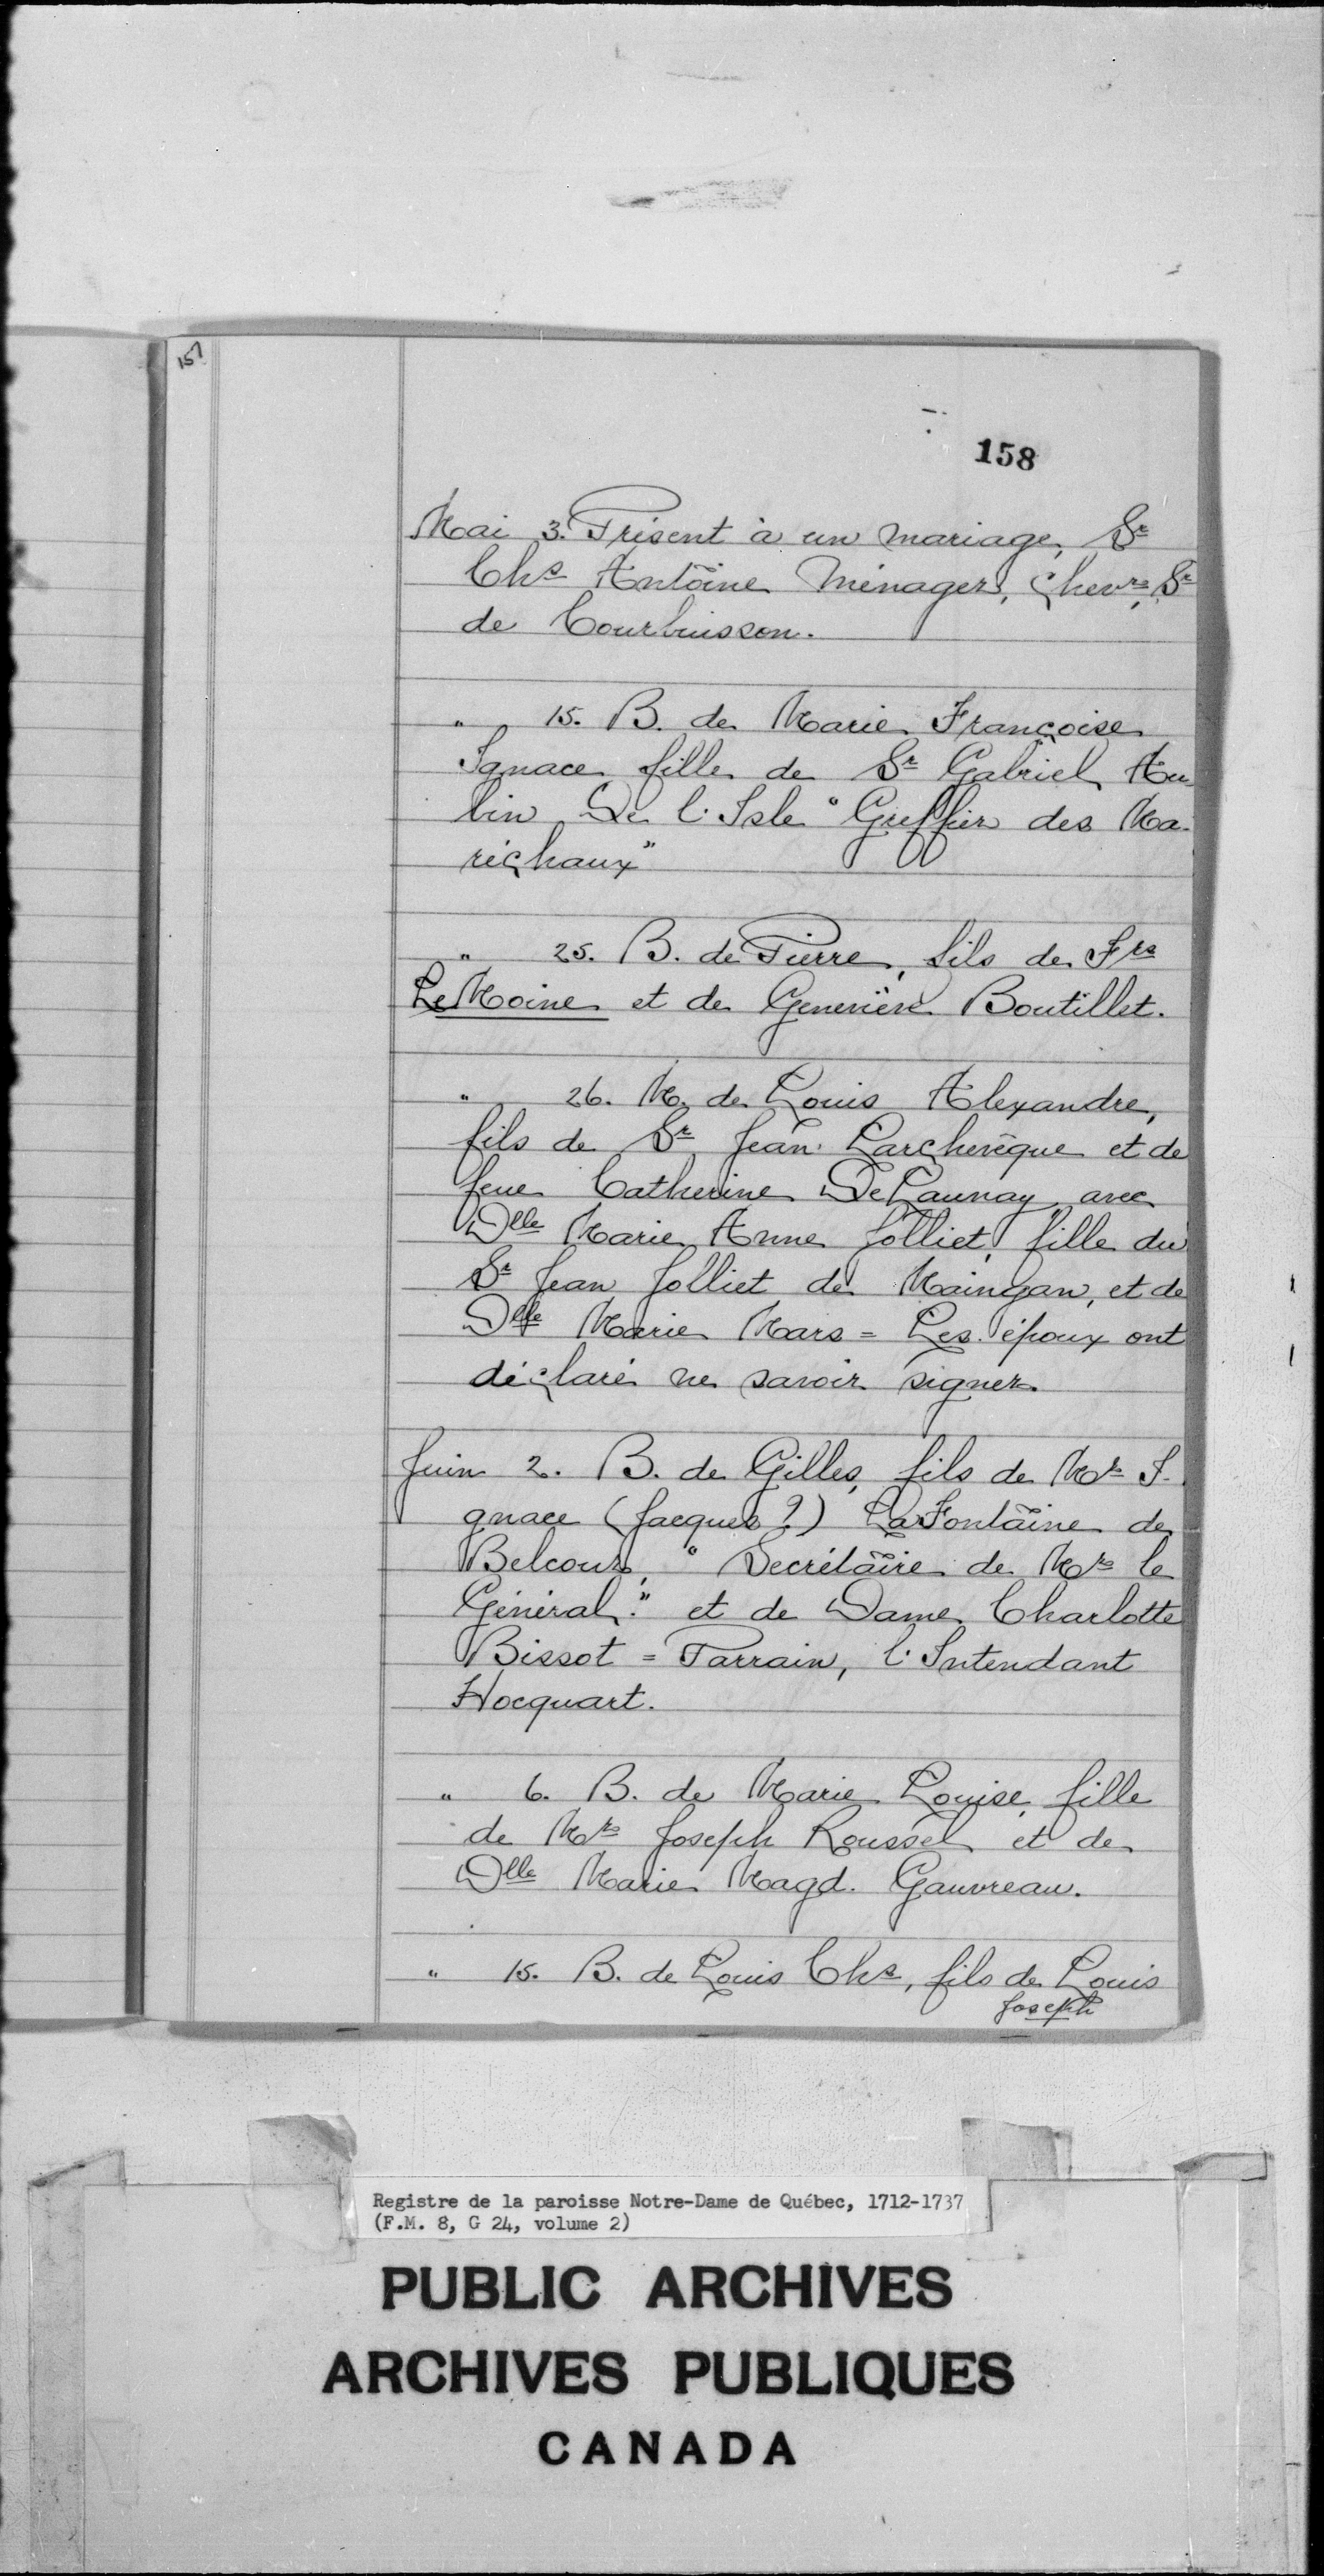 157
158
Mai 3. Présent à un mariage, Sr
Chs Antoine Ménager, Chevr, Sr
de Courbuisson.
" 15. B. de Marie Françoise
Ignace fille de Sr Gabriel Au-
bin De l'Isle "Greffier des Ma-
réchaux"
" 25. B. de Pierre, fils de Frs
LeMoine et de Geneviève Boutillet.
" 26. M. de Louis Alexandre,
fils de Sr Jean Larchevêque et de
feue Catherine DeLaunay avec
Dlle Marie Anne Jolliet, fille du
Sr Jean Jolliet de Maingan, et de
Dlle Marie Mars = Les époux ont
déclaré ne savoir signer.
Juin 2. B. de Gilles, fils de Mr I-
gnace (Jacques?) LaFontaine de
Belcour, "Secrétaire de Mr le
Général." et de Dame Charlotte
Bissot = Parrain, l'Intendant
Hocquart.
" 6. B. de Marie Louise, fille
de Mr Joseph Roussel et de
Dlle Marie Magd. Gauvreau.
" 15. B. de Louis Chs, fils de Louis
Joseph
Registre de la paroisse Notre-Dame de Québec, 1712-1737
(F.M. 8, G 24, volume 2)
PUBLIC ARCHIVES
ARCHIVES PUBLIQUES
CANADA